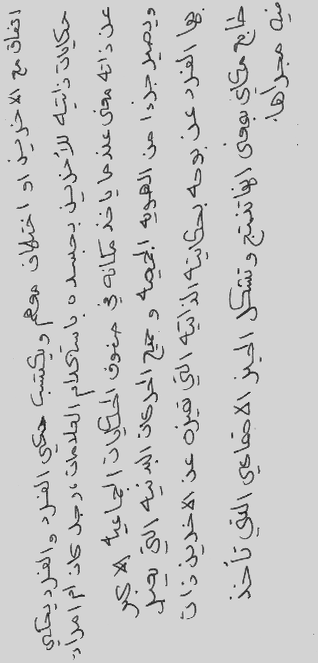 اتفاق مع الاخرين او اختلاف معهم ويكتسب حكي الفرد والفرد يحكي
حكايات ذاتيه للأخرين بجسده باستخدام العلامات، رجل كان ام امراه
عن ذاته معنى عندما ياخذ مكانه في صفوف الحكايات الجماعيه الاكبر
ويصير جزءا من الهويه الجمعيه و جميع الحركات البدنيه التي يعبر
بها الفرد عن بوحه بحكايته الذاتيه التي تميزه عن الاخرين ذات
طابع مكاني بمعنى انها تنتج وتشكل الحيز الاجتماعي التي تأخذ
فيه مجراها.